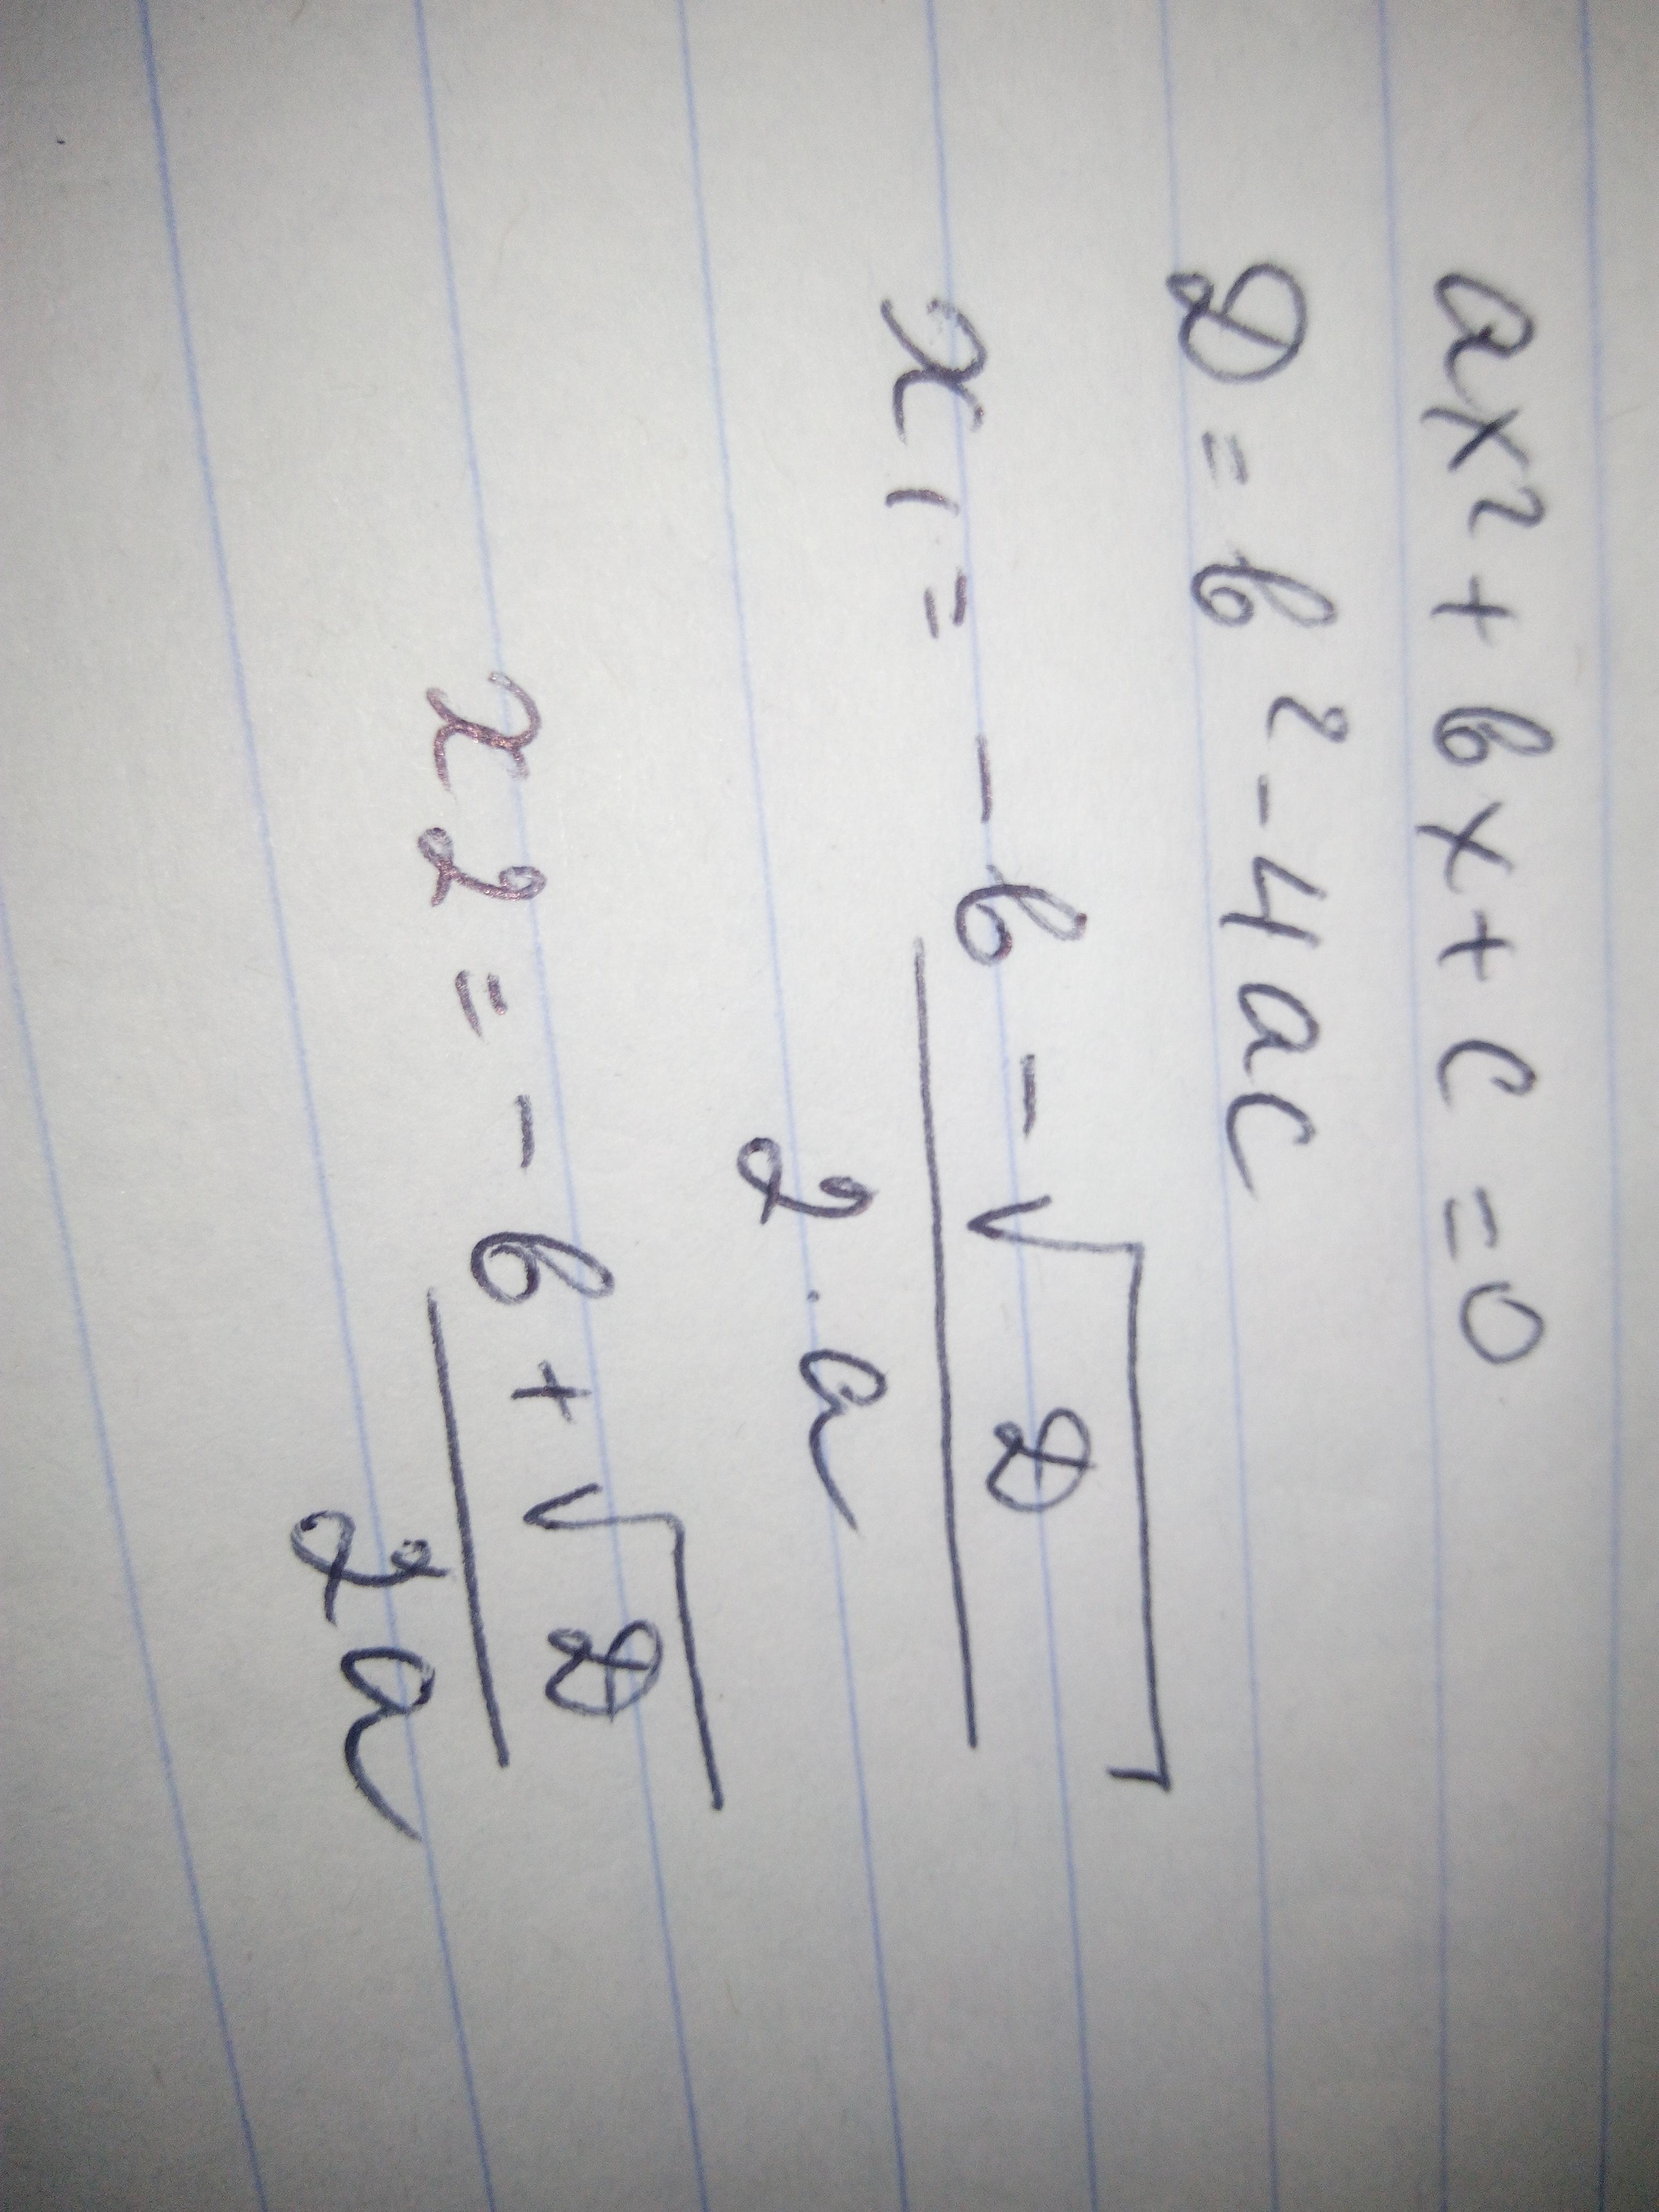 ax² + bx + c = 0
D = b² - 4ac
x₁ = (-b - √D) / (2 · a)
x₂ = (-b + √D) / (2a)